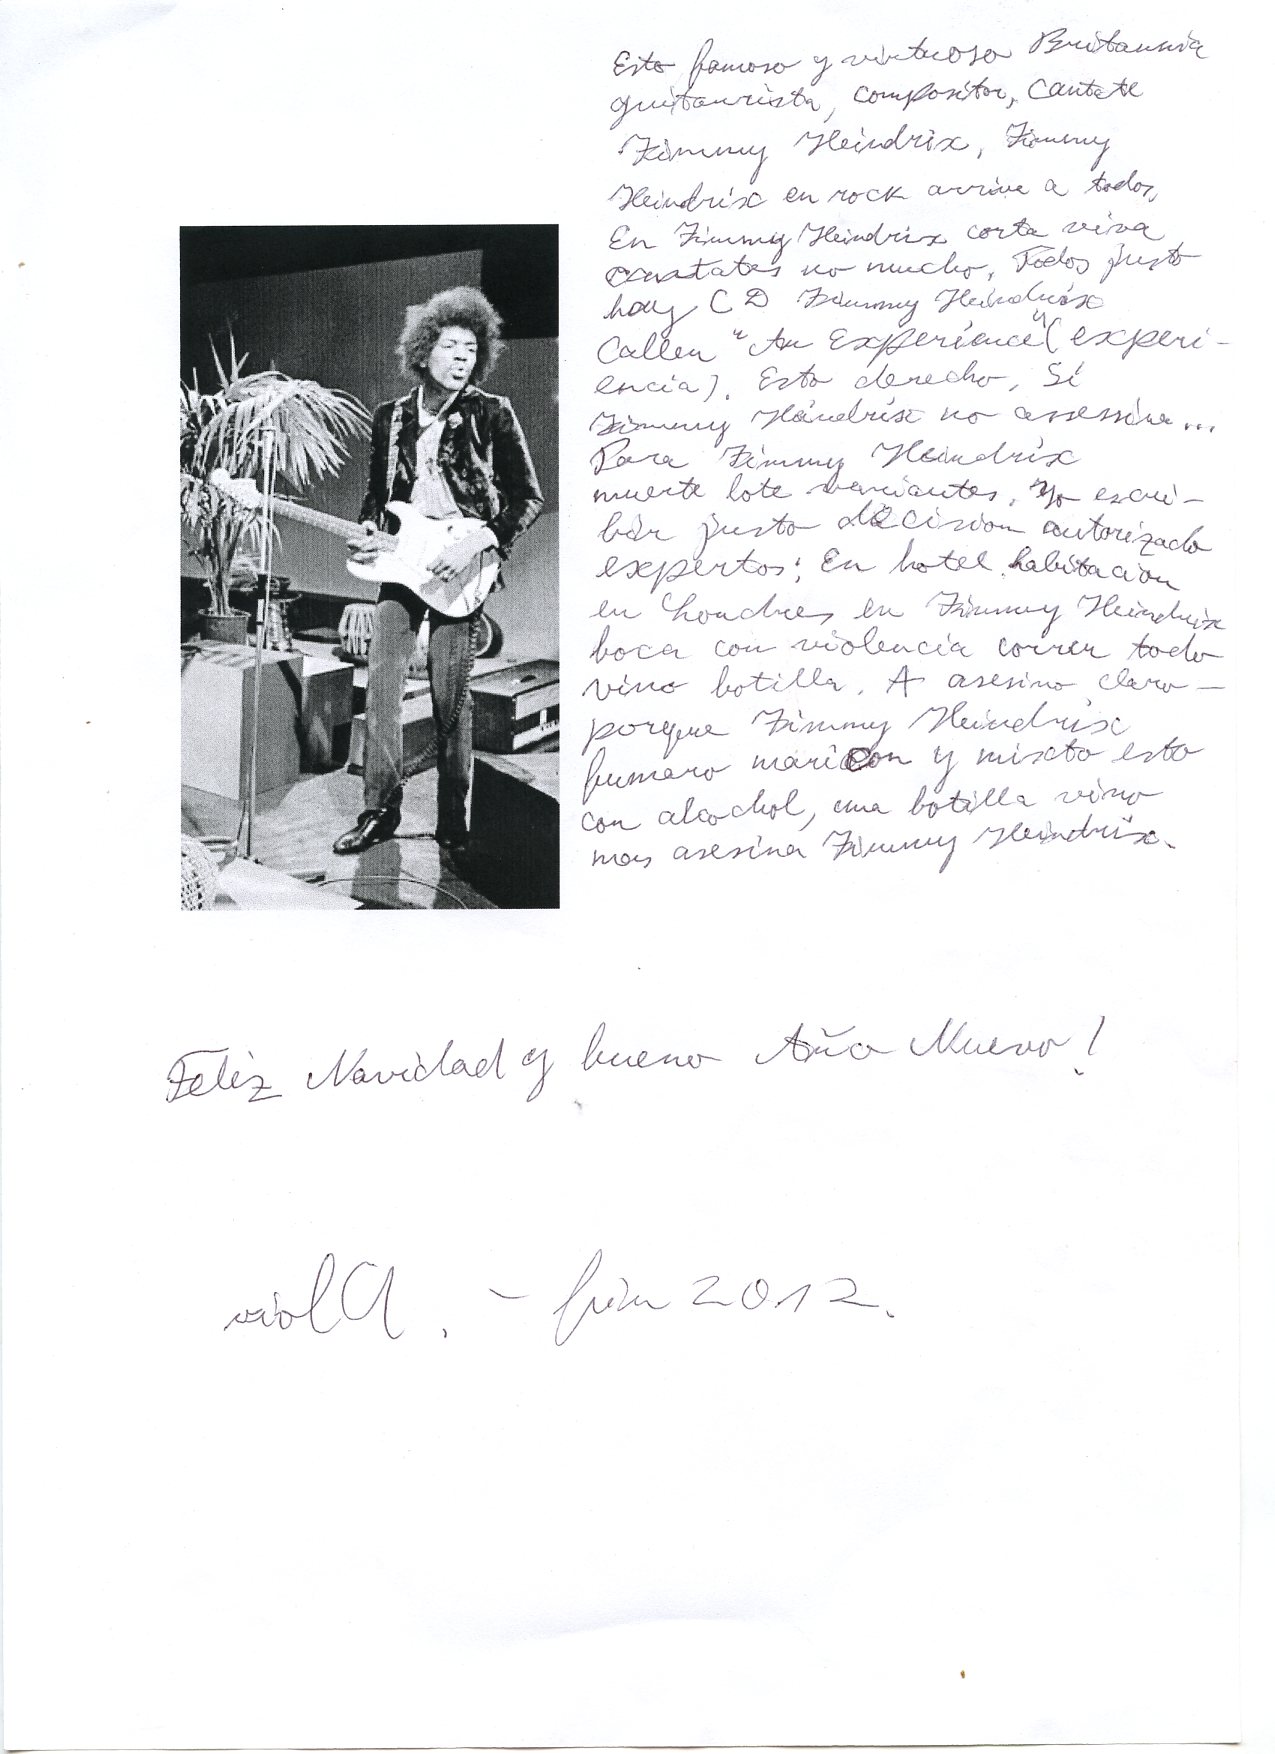 Esto famoso y virtuoso Britannia
guitaurista, compositor, cantate
Jimmy Heindrix, Jimmy
Heindrix en rock arrive a todos,
En Jimmy Heindrix corta viva
canstates no mucho, Todos justo
hay CD Jimmy Heindrix
Callen "An Experience" (experi-
encia). Esto derecho, Sí
Jimmy Heindrix no assessina...
Para Jimmy Heindrix
muerte lote variantes. Yo escri-
bir justo decision autorizado
expertos: En hotel habitacion
en Londres en Jimmy Heindrix
boca con violencia correr todo
vino botilla. A asesino claro -
porque Jimmy Heindrix
fumaro maricon y mixto esto
con alcochol, una botilla vino
mas asesina Jimmy Heindrix.
Feliz Navidad y bueno Año Nuevo!
violA. - fin 2012.